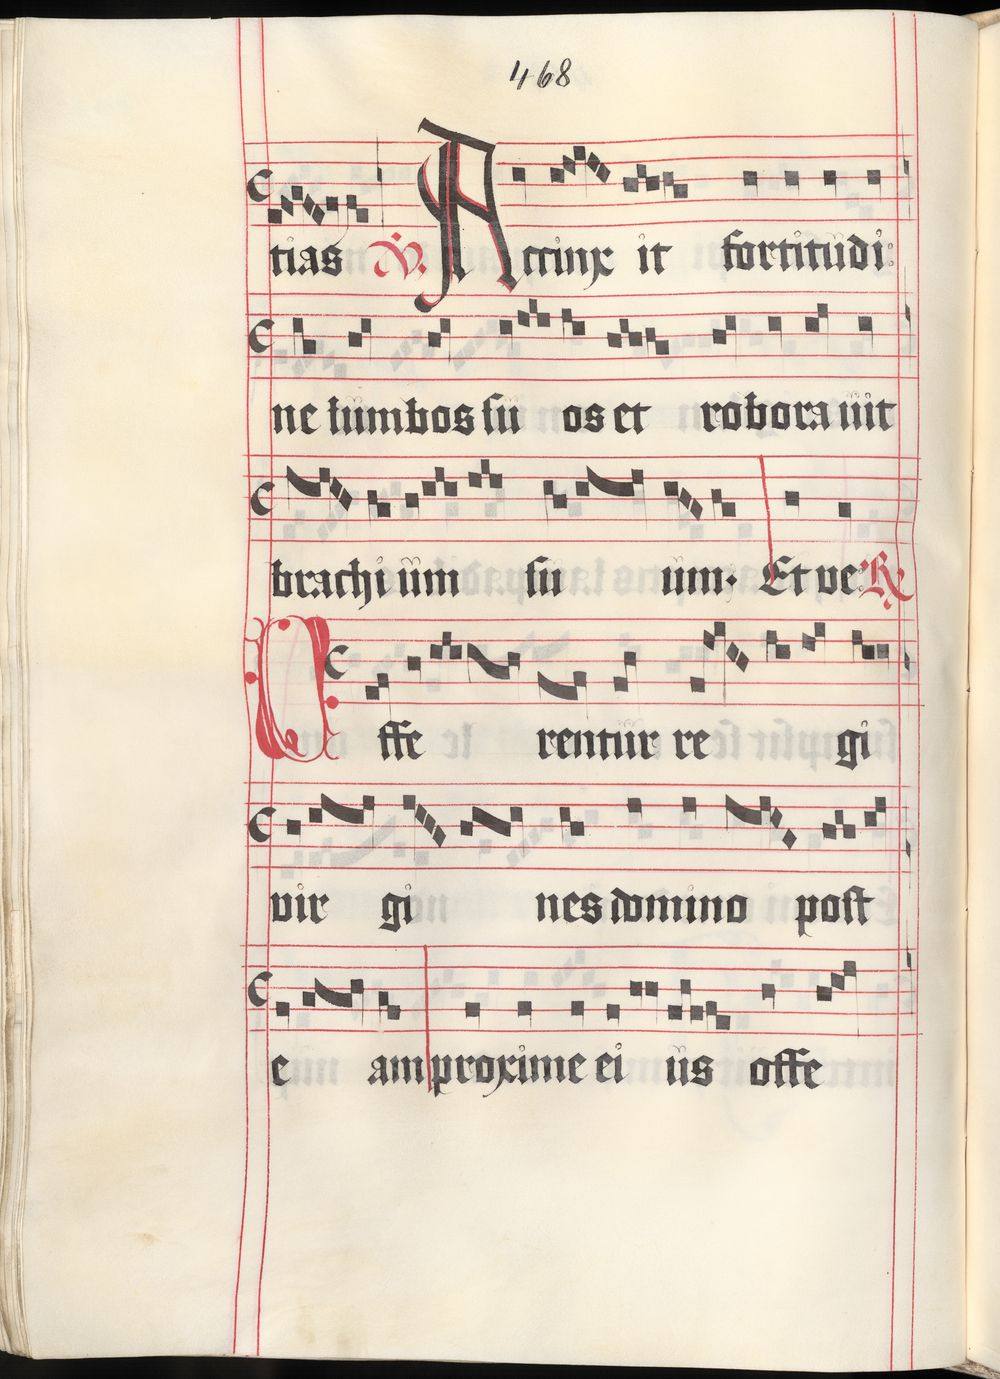 468
tias ℣. Accinx it fortitudi
ne lumbos su os et robora uit
brachium su um. Et ve ℟
Offe rentur re gi
vir gi nes domino post
e am proxime ei us offe